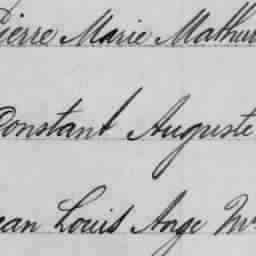 Pierre Marie Mathur
Constant Auguste
ean Louis Ange